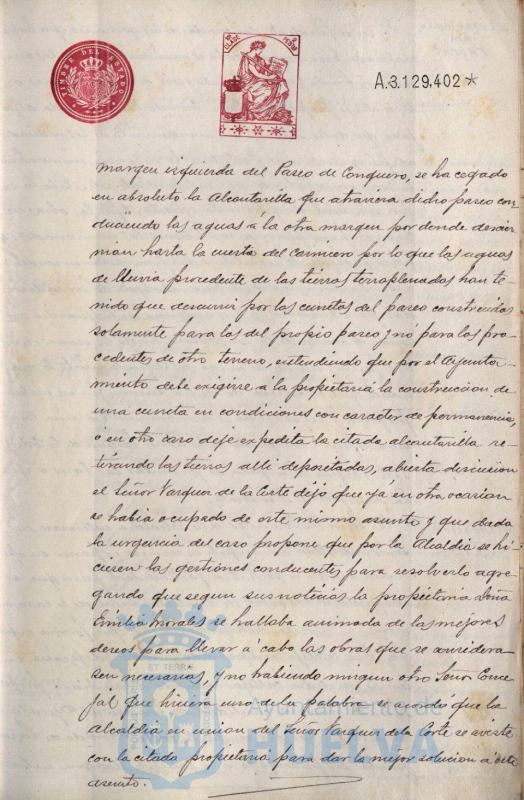 TIMBRE DEL ESTADO
CLASE
A.3.129,402*
margen izquierda del Paseo de Conquero, se ha cegado
en absoluto la Alcantarilla que atraviesa dicho paseo con
duciendo las aguas á la otra margen por donde descur
nian hasta la cuesta del carnicero por lo que las aguas
de lluvia procedente de las tierras terraplenadas han te-
nido que descurrir por las cunetas del paseo construidas
solamente para las del propio paseo y nó para las pro-
cedentes de otro terreno, entendiendo que por el Ayunta-
miento debe exigirse á la propietaria la construccion de
una cuneta en condiciones con caracter de permanencia,
ó en otro caso deje expedita la citada alcantarilla re-
tirando las tierras alli depositadas, abierta discusion
el Señor Vazquez de la Corte dijo que yá en otra ocasion
se habia ocupado de este mismo asunto y que dada
la urgencia del caso propone que por la Alcaldia se hi-
ciesen las gestiones conducentes para resolverlo agre-
gando que segun sus noticias la propietaria Doña
Emilia Morales se hallaba animada de las mejores
deseos para llevar á cabo las obras que se considera
sen necesarias, y no habiendo ningun otro Señor Conce
jal que hiciera uso de la palabra se acordó que la
Alcaldia en union del Señor Vazquez de la Corte se aviste
con la citada propietaria para dar la mejor solucion á este
asunto.
ET TERRÆ
Ayuntamiento de
HUELVA